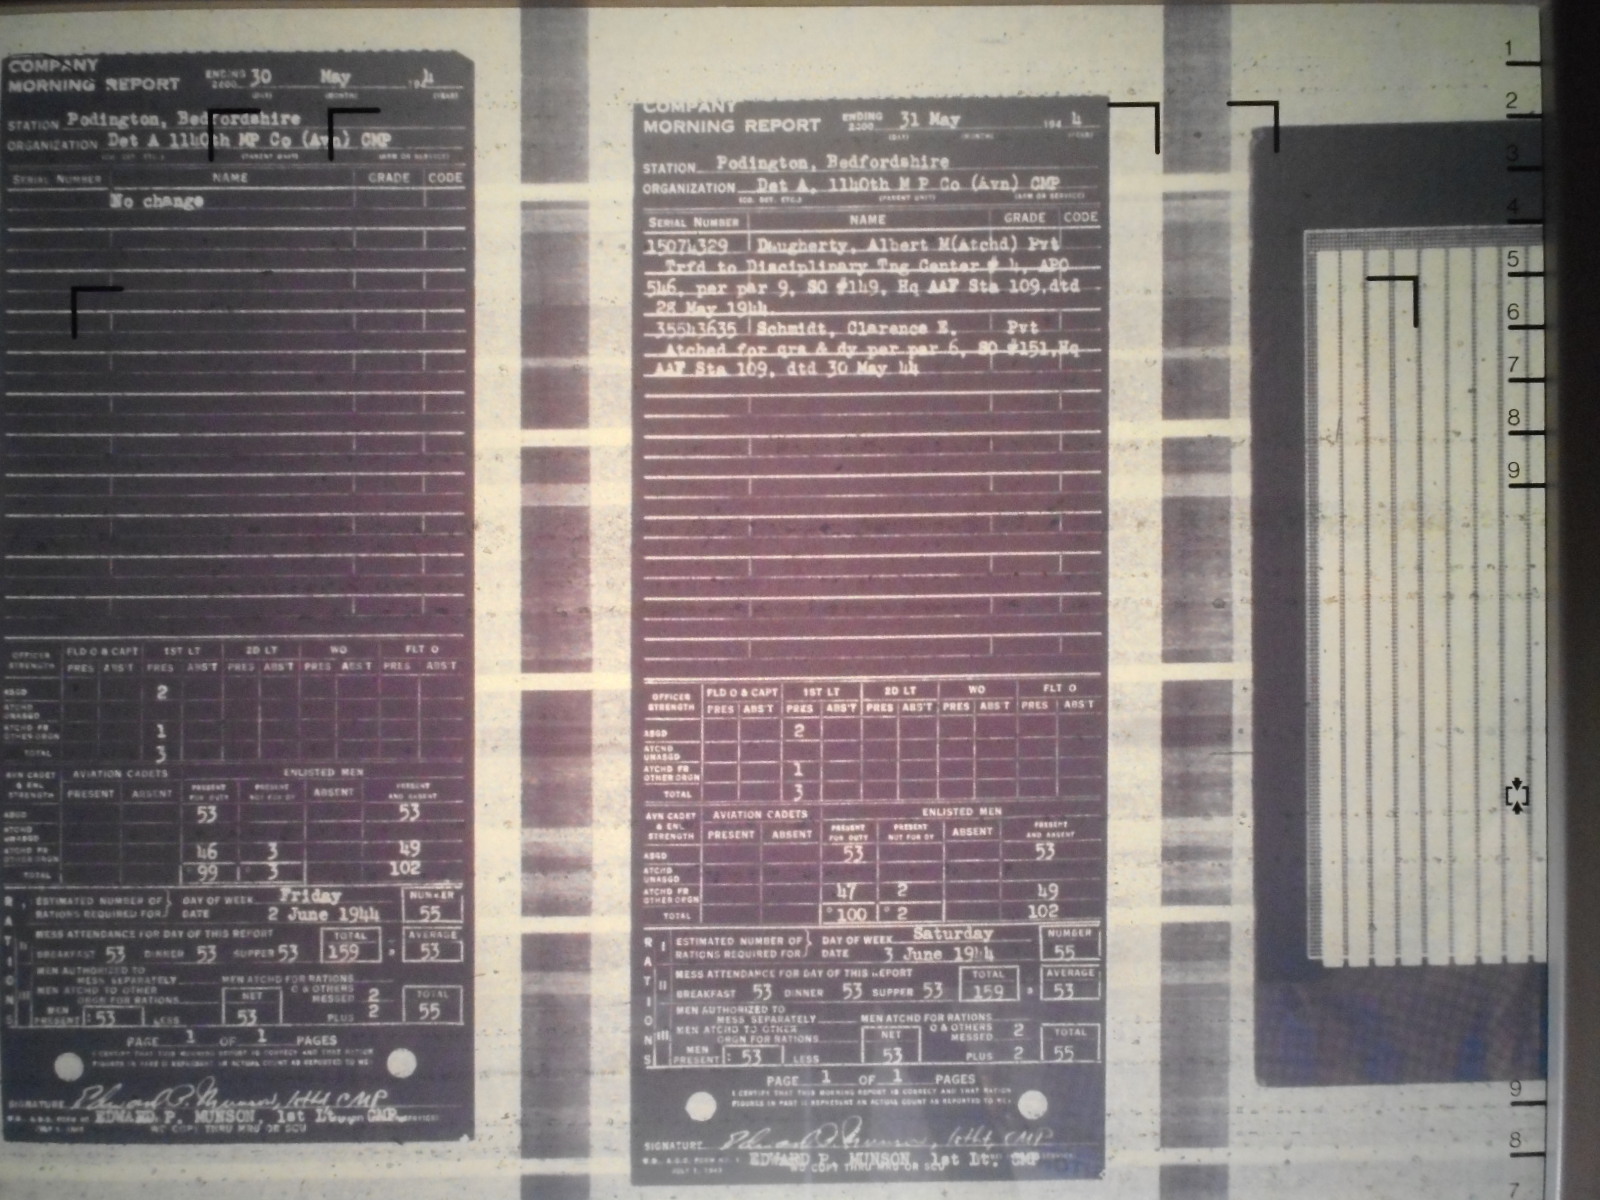 COMPANY
MORNING REPORT ENDING 2400 30 May 194 4
(DAY) (MONTH) (YEAR)
STATION Podington, Bedfordshire
ORGANIZATION Det A 1140th MP Co (Avn) CMP
(CO, DET, ETC.) (PARENT UNIT) (ARM OR SERVICE)
SERIAL NUMBER NAME GRADE CODE
No change
OFFICER STRENGTH FLD O & CAPT 1ST LT 2D LT WO FLT O
PRES ABS'T PRES ABS'T PRES ABS'T PRES ABS'T PRES ABS'T
ASGD 2
ATCHD UNASGD
ATCHD FR OTHER ORGN 1
TOTAL 3
AVN CADET & ENL STRENGTH AVIATION CADETS ENLISTED MEN
PRESENT ABSENT PRESENT FOR DUTY PRESENT NOT FOR DY ABSENT PRESENT AND ABSENT
ASGD 53 53
ATCHD UNASGD
ATCHD FR OTHER ORGN 46 3 49
TOTAL 99 3 102
RATIONS
ESTIMATED NUMBER OF RATIONS REQUIRED FOR DAY OF WEEK Friday NUMBER
DATE 2 June 1944 55
MESS ATTENDANCE FOR DAY OF THIS REPORT TOTAL AVERAGE
BREAKFAST 53 DINNER 53 SUPPER 53 159 53
MEN AUTHORIZED TO MESS SEPARATELY MEN ATCHD FOR RATIONS
MEN ATCHD TO OTHER ORGN FOR RATIONS NET O & OTHERS MESSED 2 TOTAL
MEN PRESENT 53 LESS 53 PLUS 2 55
PAGE 1 OF 1 PAGES
I CERTIFY THAT THIS MORNING REPORT IS CORRECT AND THAT RATION
FIGURES IN PART III REPRESENT AN ACTUAL COUNT AS REPORTED TO ME
SIGNATURE Edward P. Munson, 1st Lt CMP
EDWARD P. MUNSON, 1st Lt. CMP
NO COPY THRU MRU OR SCU
COMPANY
MORNING REPORT ENDING 2400 31 May 194 4
(DAY) (MONTH) (YEAR)
STATION Podington, Bedfordshire
ORGANIZATION Det A, 1140th M P Co (Avn) CMP
(CO, DET, ETC.) (PARENT UNIT) (ARM OR SERVICE)
SERIAL NUMBER NAME GRADE CODE
15074329 Daugherty, Albert M(Atchd) Pvt
Trfd to Disciplinary Tng Center # 4, APO
546, per par 9, SO #149, Hq AAF Sta 109,dtd
28 May 1944.
35543635 Schmidt, Clarence E. Pvt
Atched for qrs & dy per par 6, SO #151,Hq
AAF Sta 109, dtd 30 May 44
OFFICER STRENGTH FLD O & CAPT 1ST LT 2D LT WO FLT O
PRES ABS'T PRES ABS'T PRES ABS'T PRES ABS'T PRES ABS'T
ASGD 2
ATCHD UNASGD
ATCHD FR OTHER ORGN 1
TOTAL 3
AVN CADET & ENL STRENGTH AVIATION CADETS ENLISTED MEN
PRESENT ABSENT PRESENT FOR DUTY PRESENT NOT FOR DY ABSENT PRESENT AND ABSENT
ASGD 53 53
ATCHD UNASGD
ATCHD FR OTHER ORGN 47 2 49
TOTAL 100 2 102
RATIONS
I ESTIMATED NUMBER OF RATIONS REQUIRED FOR DAY OF WEEK Saturday NUMBER
DATE 3 June 1944 55
II MESS ATTENDANCE FOR DAY OF THIS REPORT TOTAL AVERAGE
BREAKFAST 53 DINNER 53 SUPPER 53 159 53
III MEN AUTHORIZED TO MESS SEPARATELY MEN ATCHD FOR RATIONS
MEN ATCHD TO OTHER ORGN FOR RATIONS NET O & OTHERS MESSED 2 TOTAL
MEN PRESENT 53 LESS 53 PLUS 2 55
PAGE 1 OF 1 PAGES
I CERTIFY THAT THIS MORNING REPORT IS CORRECT AND THAT RATION
FIGURES IN PART III REPRESENT AN ACTUAL COUNT AS REPORTED TO ME
SIGNATURE Edward P. Munson, 1st Lt CMP
W.D., A.G.O. FORM NO. 1 EDWARD P. MUNSON, 1st Lt. CMP
JULY 1, 1943 NO COPY THRU MRU OR SCU
1
2
3
4
5
6
7
8
9
9
8
7